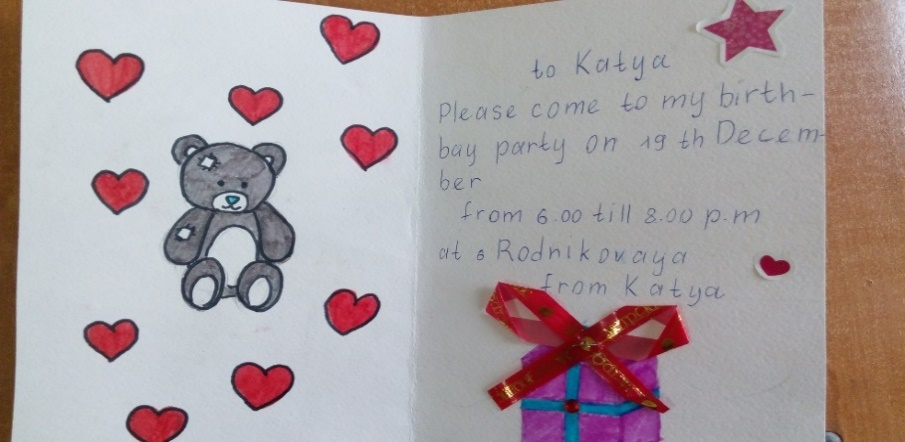 to Katya
Please come to my birth-
bay party on 19 th Decem-
ber
from 6.00 till 8.00 p.m
at 6 Rodnikovaya
from Katya